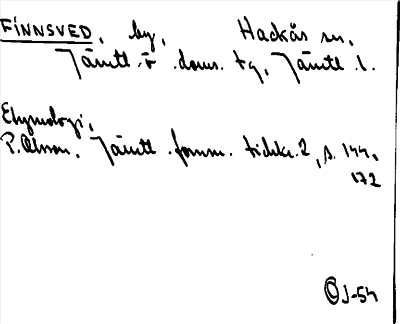 FINNSVED, by, Hackås sn,
Jämtl. ö. doms. tg, Jämtl. l.
Etymologi,
P. Olsson, Jämtl. fornm. tidskr. 2, s. 144,
172
ÖJ-54